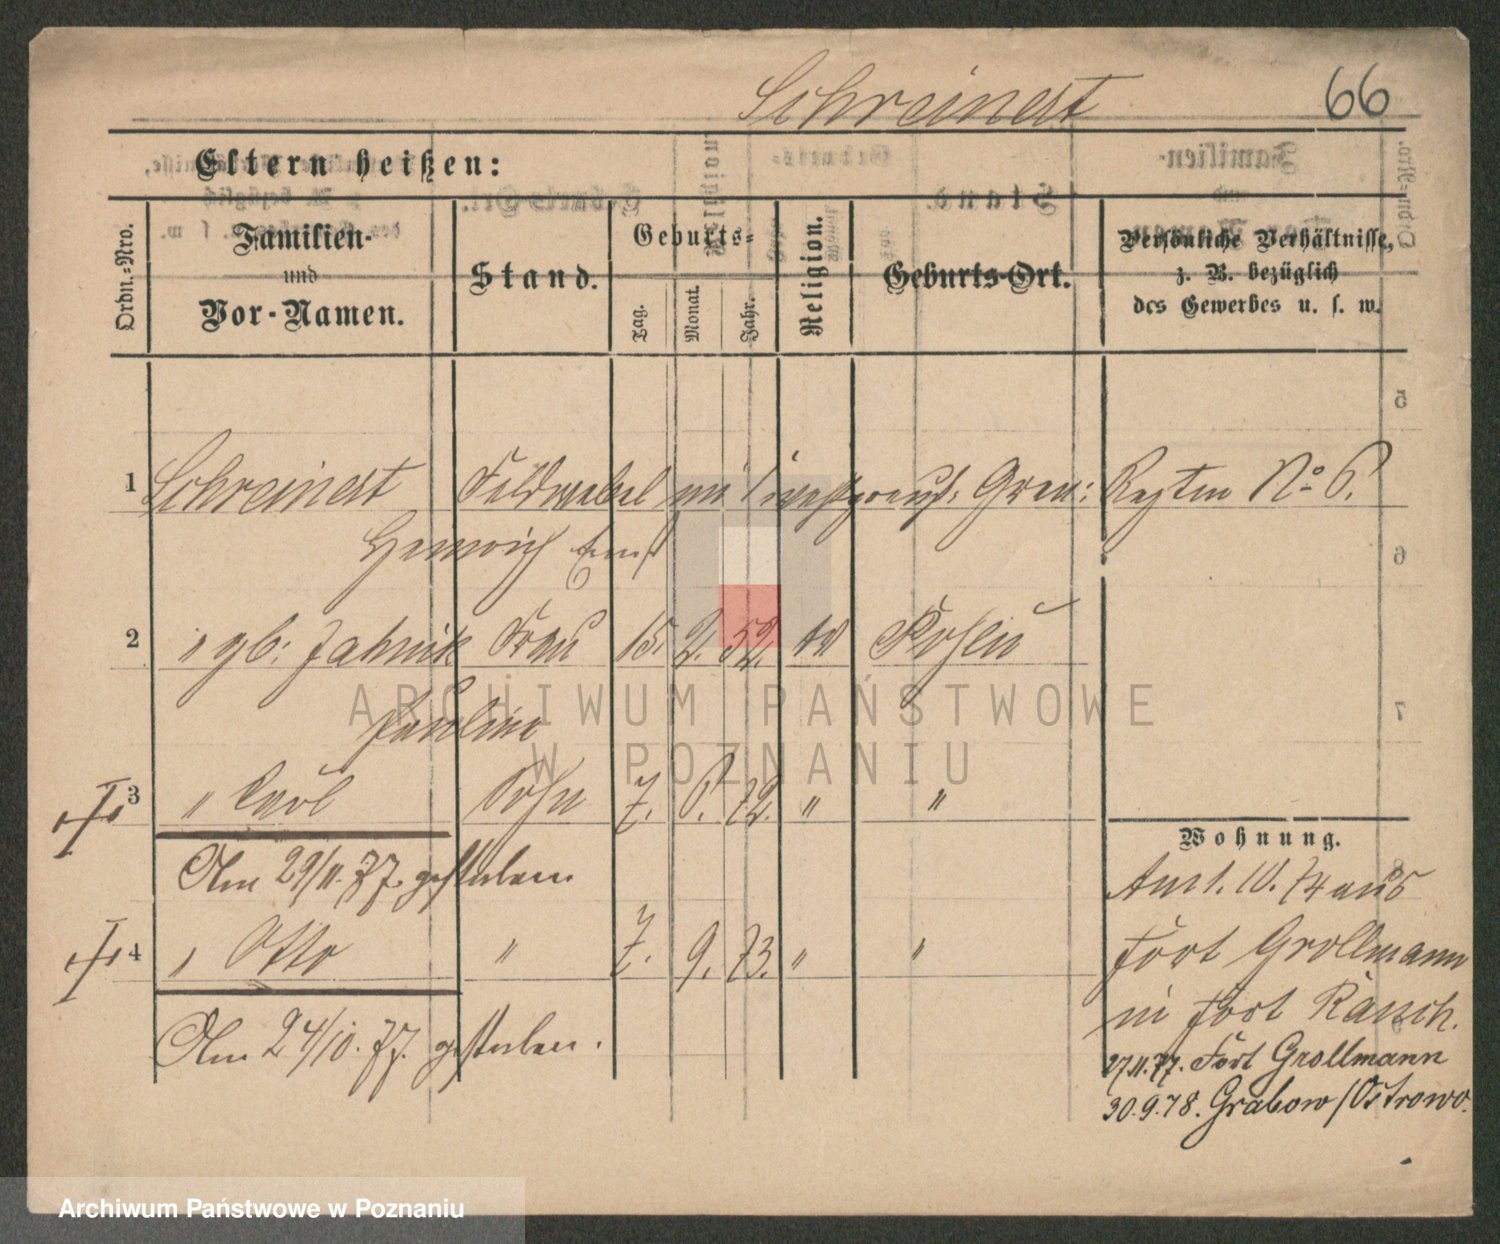 Schreinert 66
Eltern heißen:
Ordn.=Nro.
Familien-
und
Vor-Namen.
Stand.
Geburts=
Tag.
Monat.
Jahr.
Religion.
Geburts-Ort.
Persönliche Verhältnisse,
z. B. bezüglich
des Gewerbes u. s. w.
1 Schreinert Feldwebel im 1 westpreuß. Gren: Regtm No 6.
Heinrich Ernst
2 " gb: Jahnik Frau 15. 2. 52. Posen
Pauline
3 " Carl Sohn 7. 6. 72. " "
Am 29/11. 77. gestorben
4 " Otto " 7. 9. 73. " "
Am 24/10. 77. gestorben.
Wohnung.
Am 1. 10. 74 aus
Fort Grollmann
in Fort Rauch.
27.11.77. Fort Grollmann
30.9.78. Grabow/Ostrowo.
ARCHIWUM PAŃSTWOWE
W POZNANIU
Archiwum Państwowe w Poznaniu